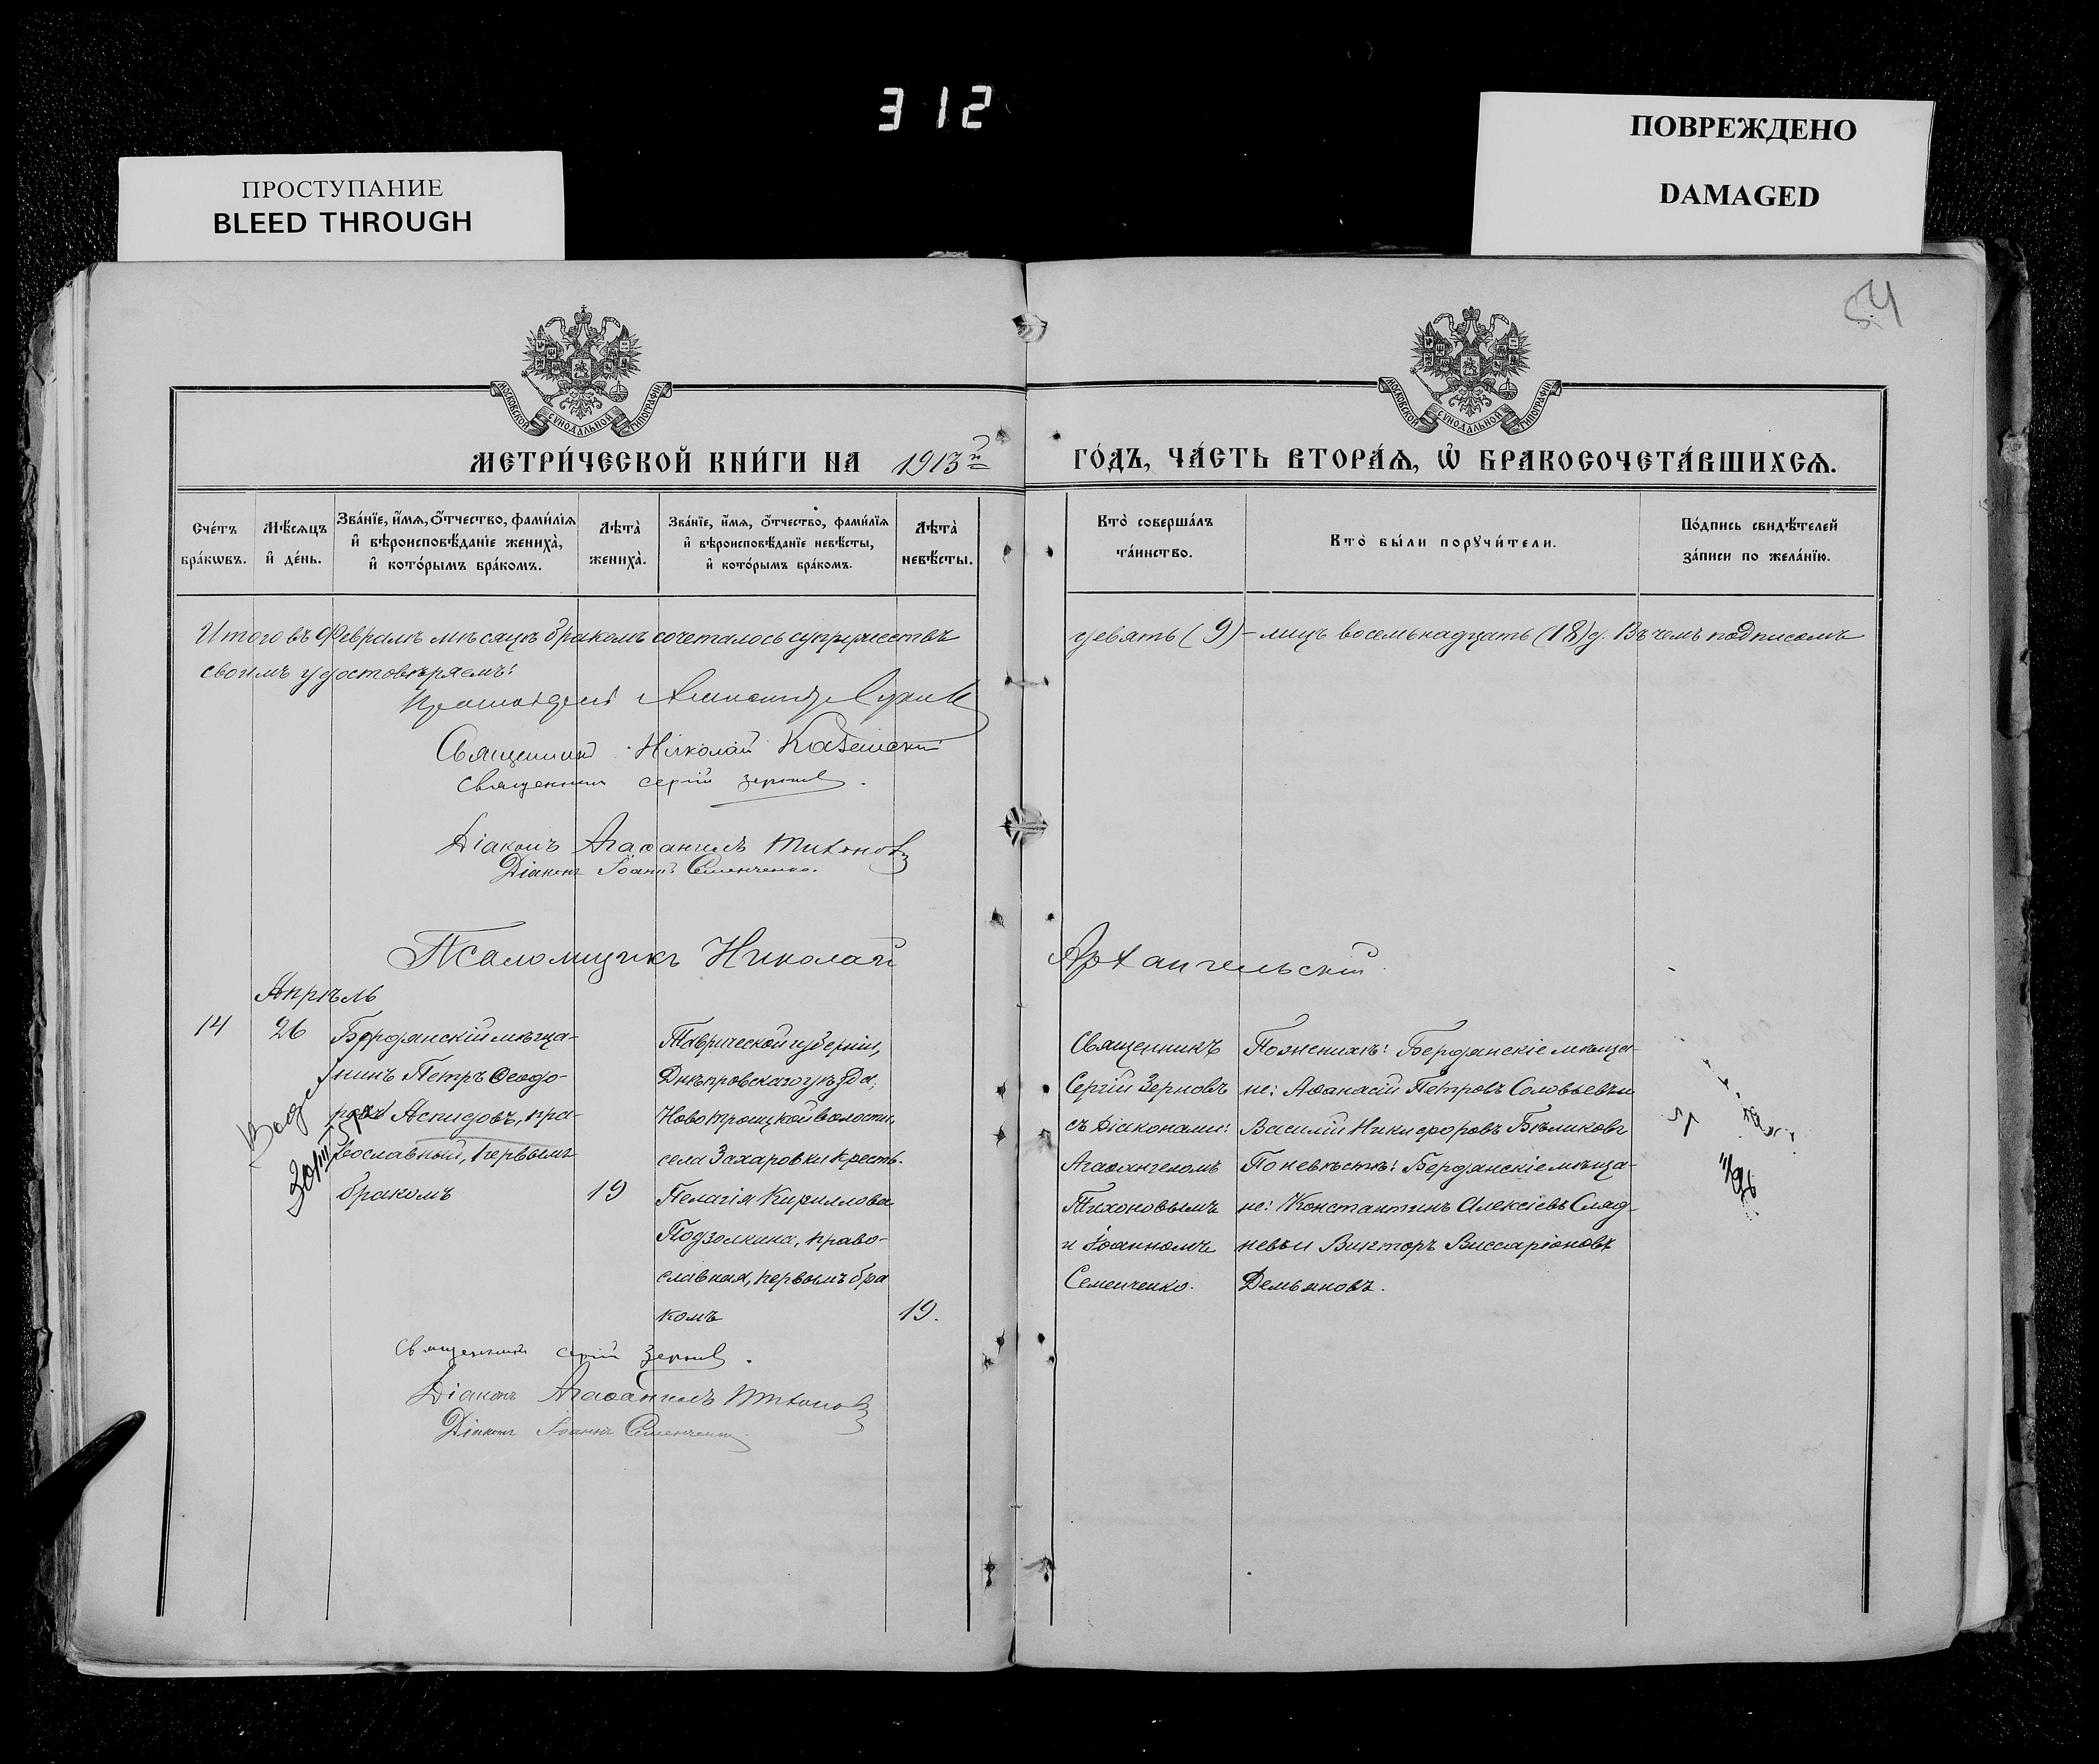 312
ПРОСТУПАНИЕ
BLEED THROUGH
ПОВРЕЖДЕНО
DAMAGED
54
МОСКОВСКОЙ СѴНОДАЛЬНОЙ ТИПОГРАФІИ
МОСКОВСКОЙ СѴНОДАЛЬНОЙ ТИПОГРАФІИ
МЕТРИ́ЧЕСКОЙ КНИ́ГИ НА 1913й
ГО́ДЪ, ЧА́СТЬ ВТОРА́Ѧ, Ѡ БРАКОСОЧЕТА́ВШИХСѦ.
Сче́тъ бра́кѡвъ.
Мѣ́сѧцъ и де́нь.
Зва́нїе, и́мѧ, о́тчество, фами́лїѧ и вѣроисповѣ́данїе жениха̀, и кото́рымъ бра́комъ.
Лѣта̀ жениха̀.
Зва́нїе, и́мѧ, о́тчество, фами́лїѧ и вѣроисповѣ́данїе невѣ́сты, и кото́рымъ бра́комъ.
Лѣта̀ невѣ́сты.
Кто̀ соверша́лъ та́инство.
Кто̀ бы́ли порꙋчи́тели.
По́дпись свидѣ́телей за́писи по жела́нїю.
Итого въ Февралѣ мѣсяцѣ бракомъ сочеталось супружествъ девять (9) – лицъ восемьнадцать (18) д. Въ чемъ подписомъ
своимъ удостовѣряемъ:
Священникъ Николай Казанскій
Священникъ Сергій Зерновъ.
Діаконъ Агаѳангелъ Тихоновъ
Діаконъ Іоаннъ Семенченко.
Псаломщикъ Николай Архангельскій
Апрѣль
14
26
Бердянскій мѣща-
нинъ Петръ Ѳеодо-
ровъ Аспидовъ, пра-
вославный, первымъ
бракомъ
19
Таврической губерніи,
Днѣпровскаго уѣзда,
Новотроицкой волости,
села Захаровки крест.
Пелагія Кириллова
Подзолкина, право-
славная, первымъ бра
комъ
19.
Священникъ
Сергій Зерновъ
съ діаконами:
Агаѳангеломъ
Тихоновымъ
и Іоанномъ
Семенченко.
По женихѣ: Бердянскіе мѣща-
не: Аѳанасій Петровъ Соловьевъ и
Василій Никифоровъ Бѣликовъ
По невѣстѣ: Бердянскіе мѣща-
не: Константинъ Алексіевъ Слад-
невъ и Викторъ Виссаріоновъ
Демьяновъ.
Священникъ Сергій Зерновъ.
Діаконъ Агаѳангелъ Тихоновъ
Діаконъ Іоаннъ Семенченко